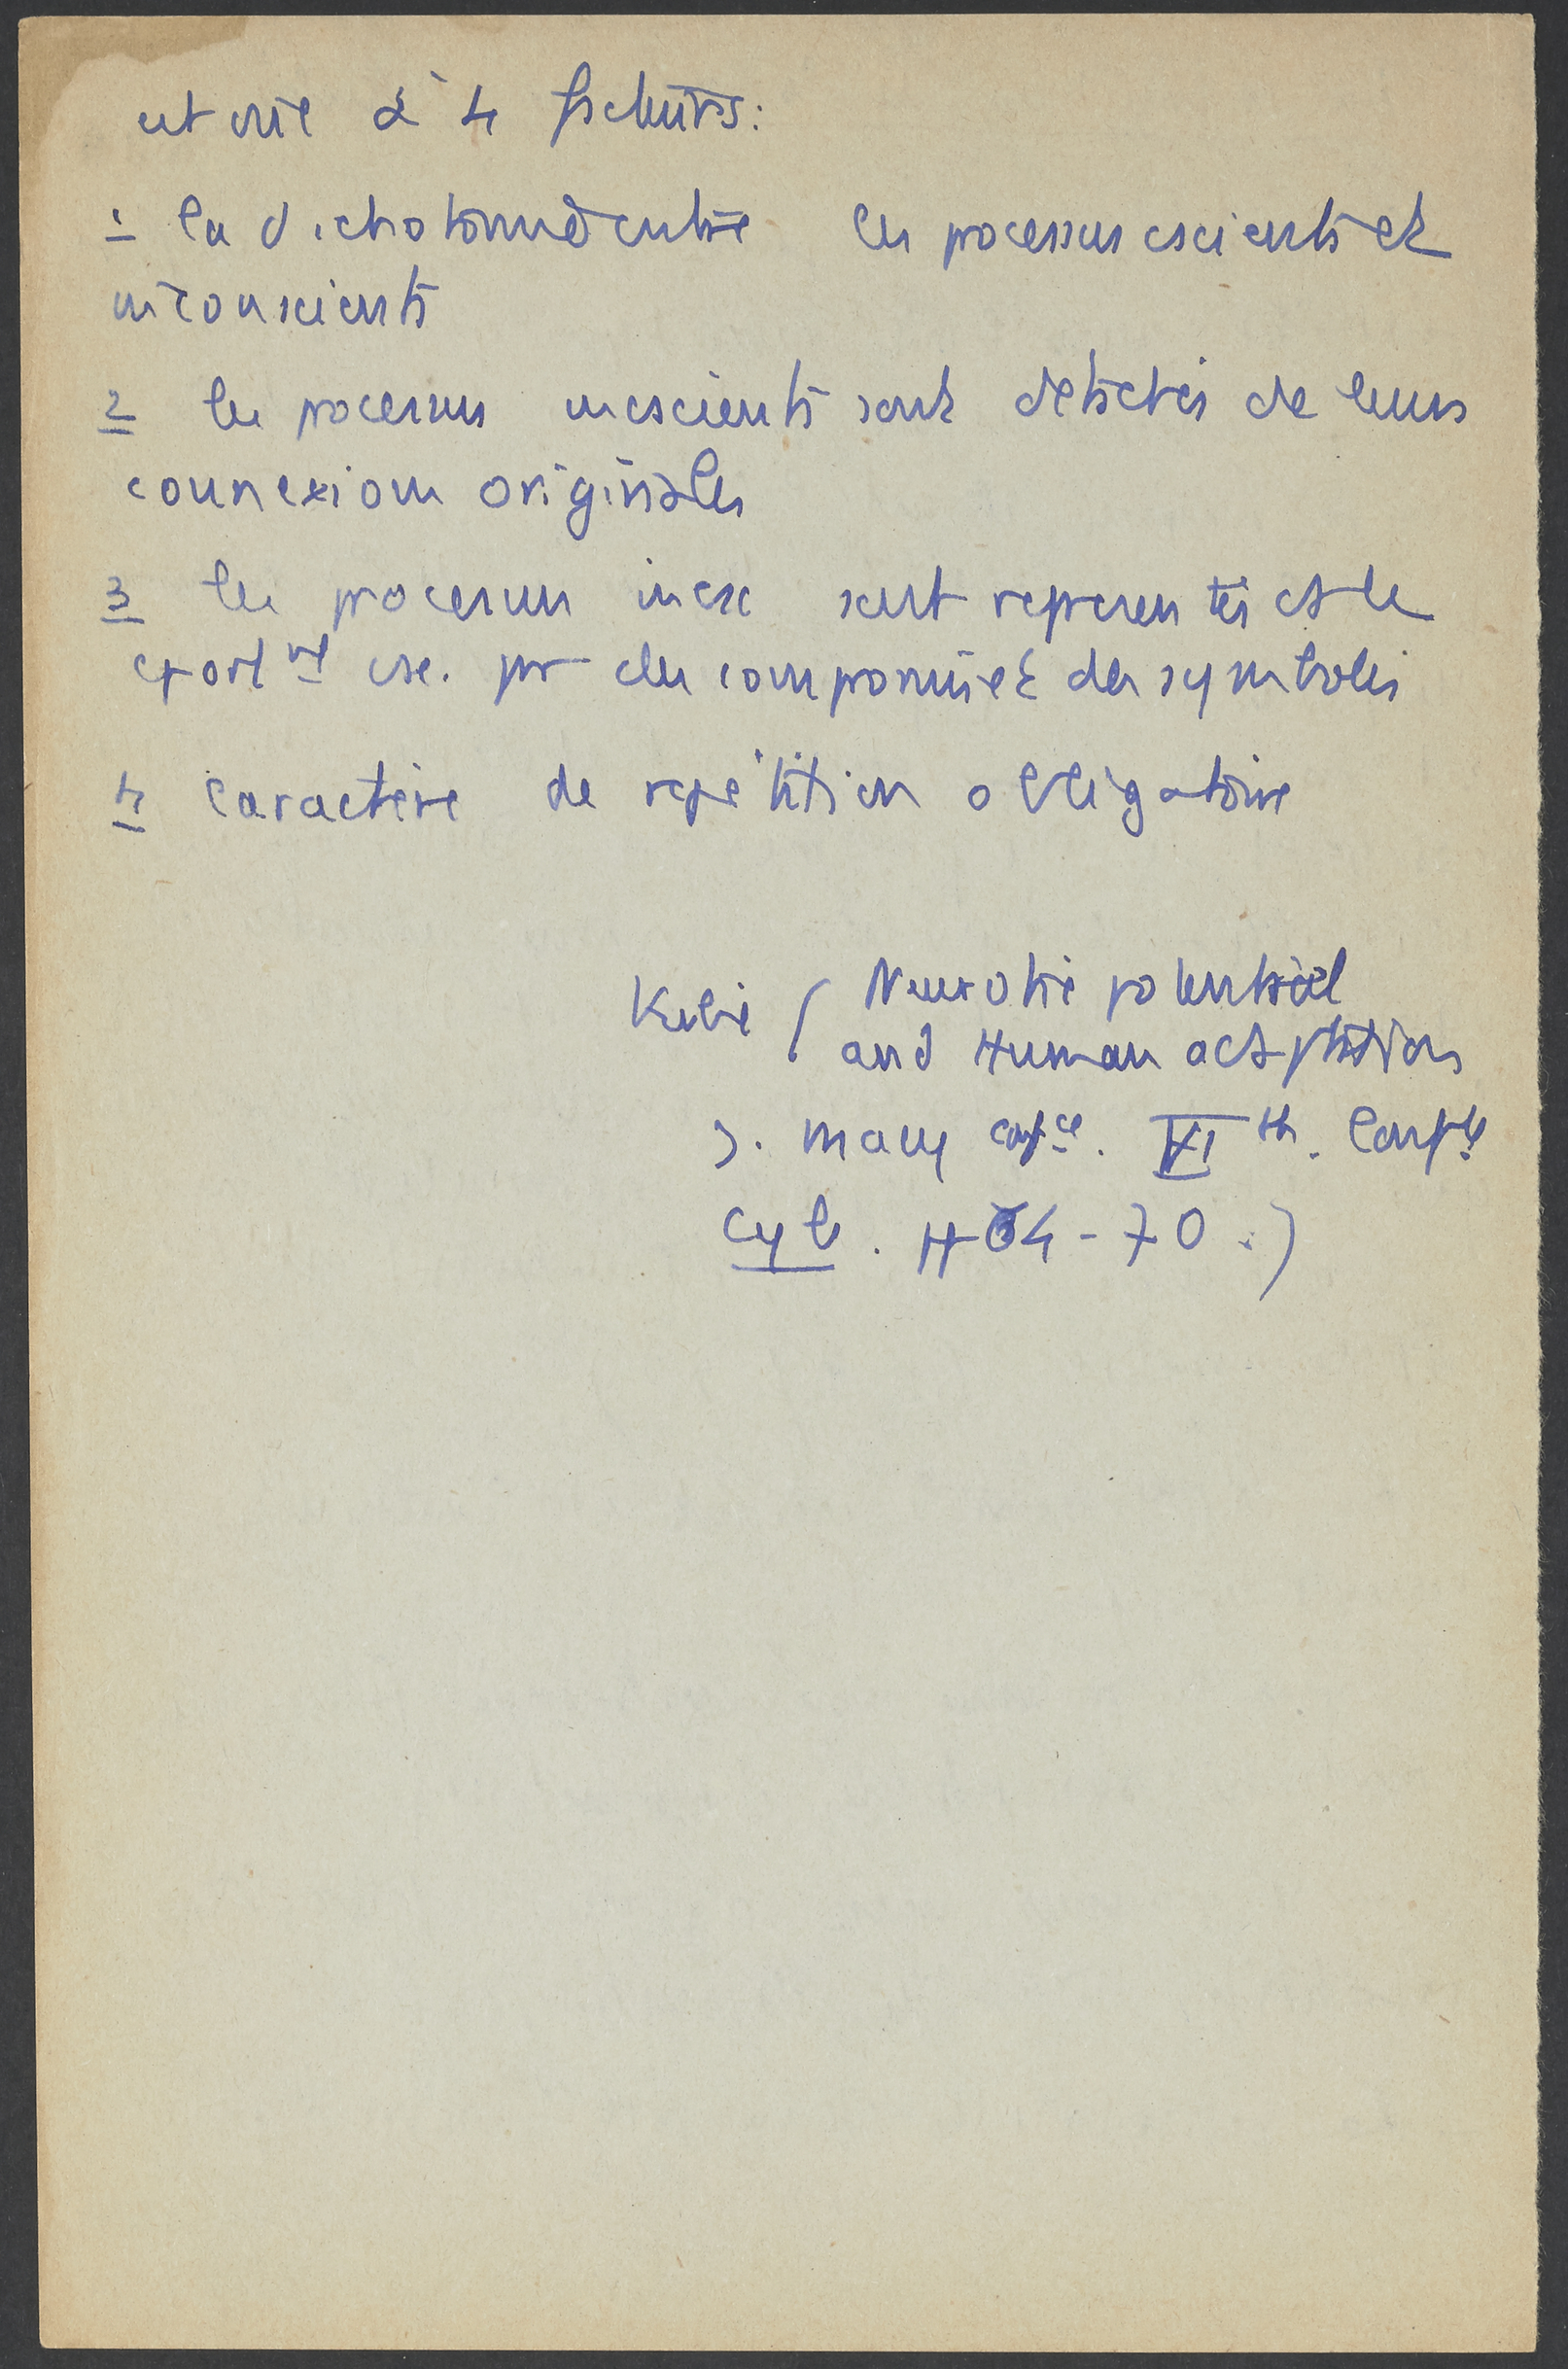 est lié à 4 facteurs :
1 la dichotomie entre les processus cscients et
inconscients
2 les processus incscients sont détachés de leurs
connexions originales
3 les processus incsc sont représentés ds le
cport nt csc. par des compromis et des symboles
4 caractère de répétition obligatoire
Kubie ( Neurotic potential
and Human adaptation
J. Macy confce. VI th. Confce
Cyb. p 64-70.)